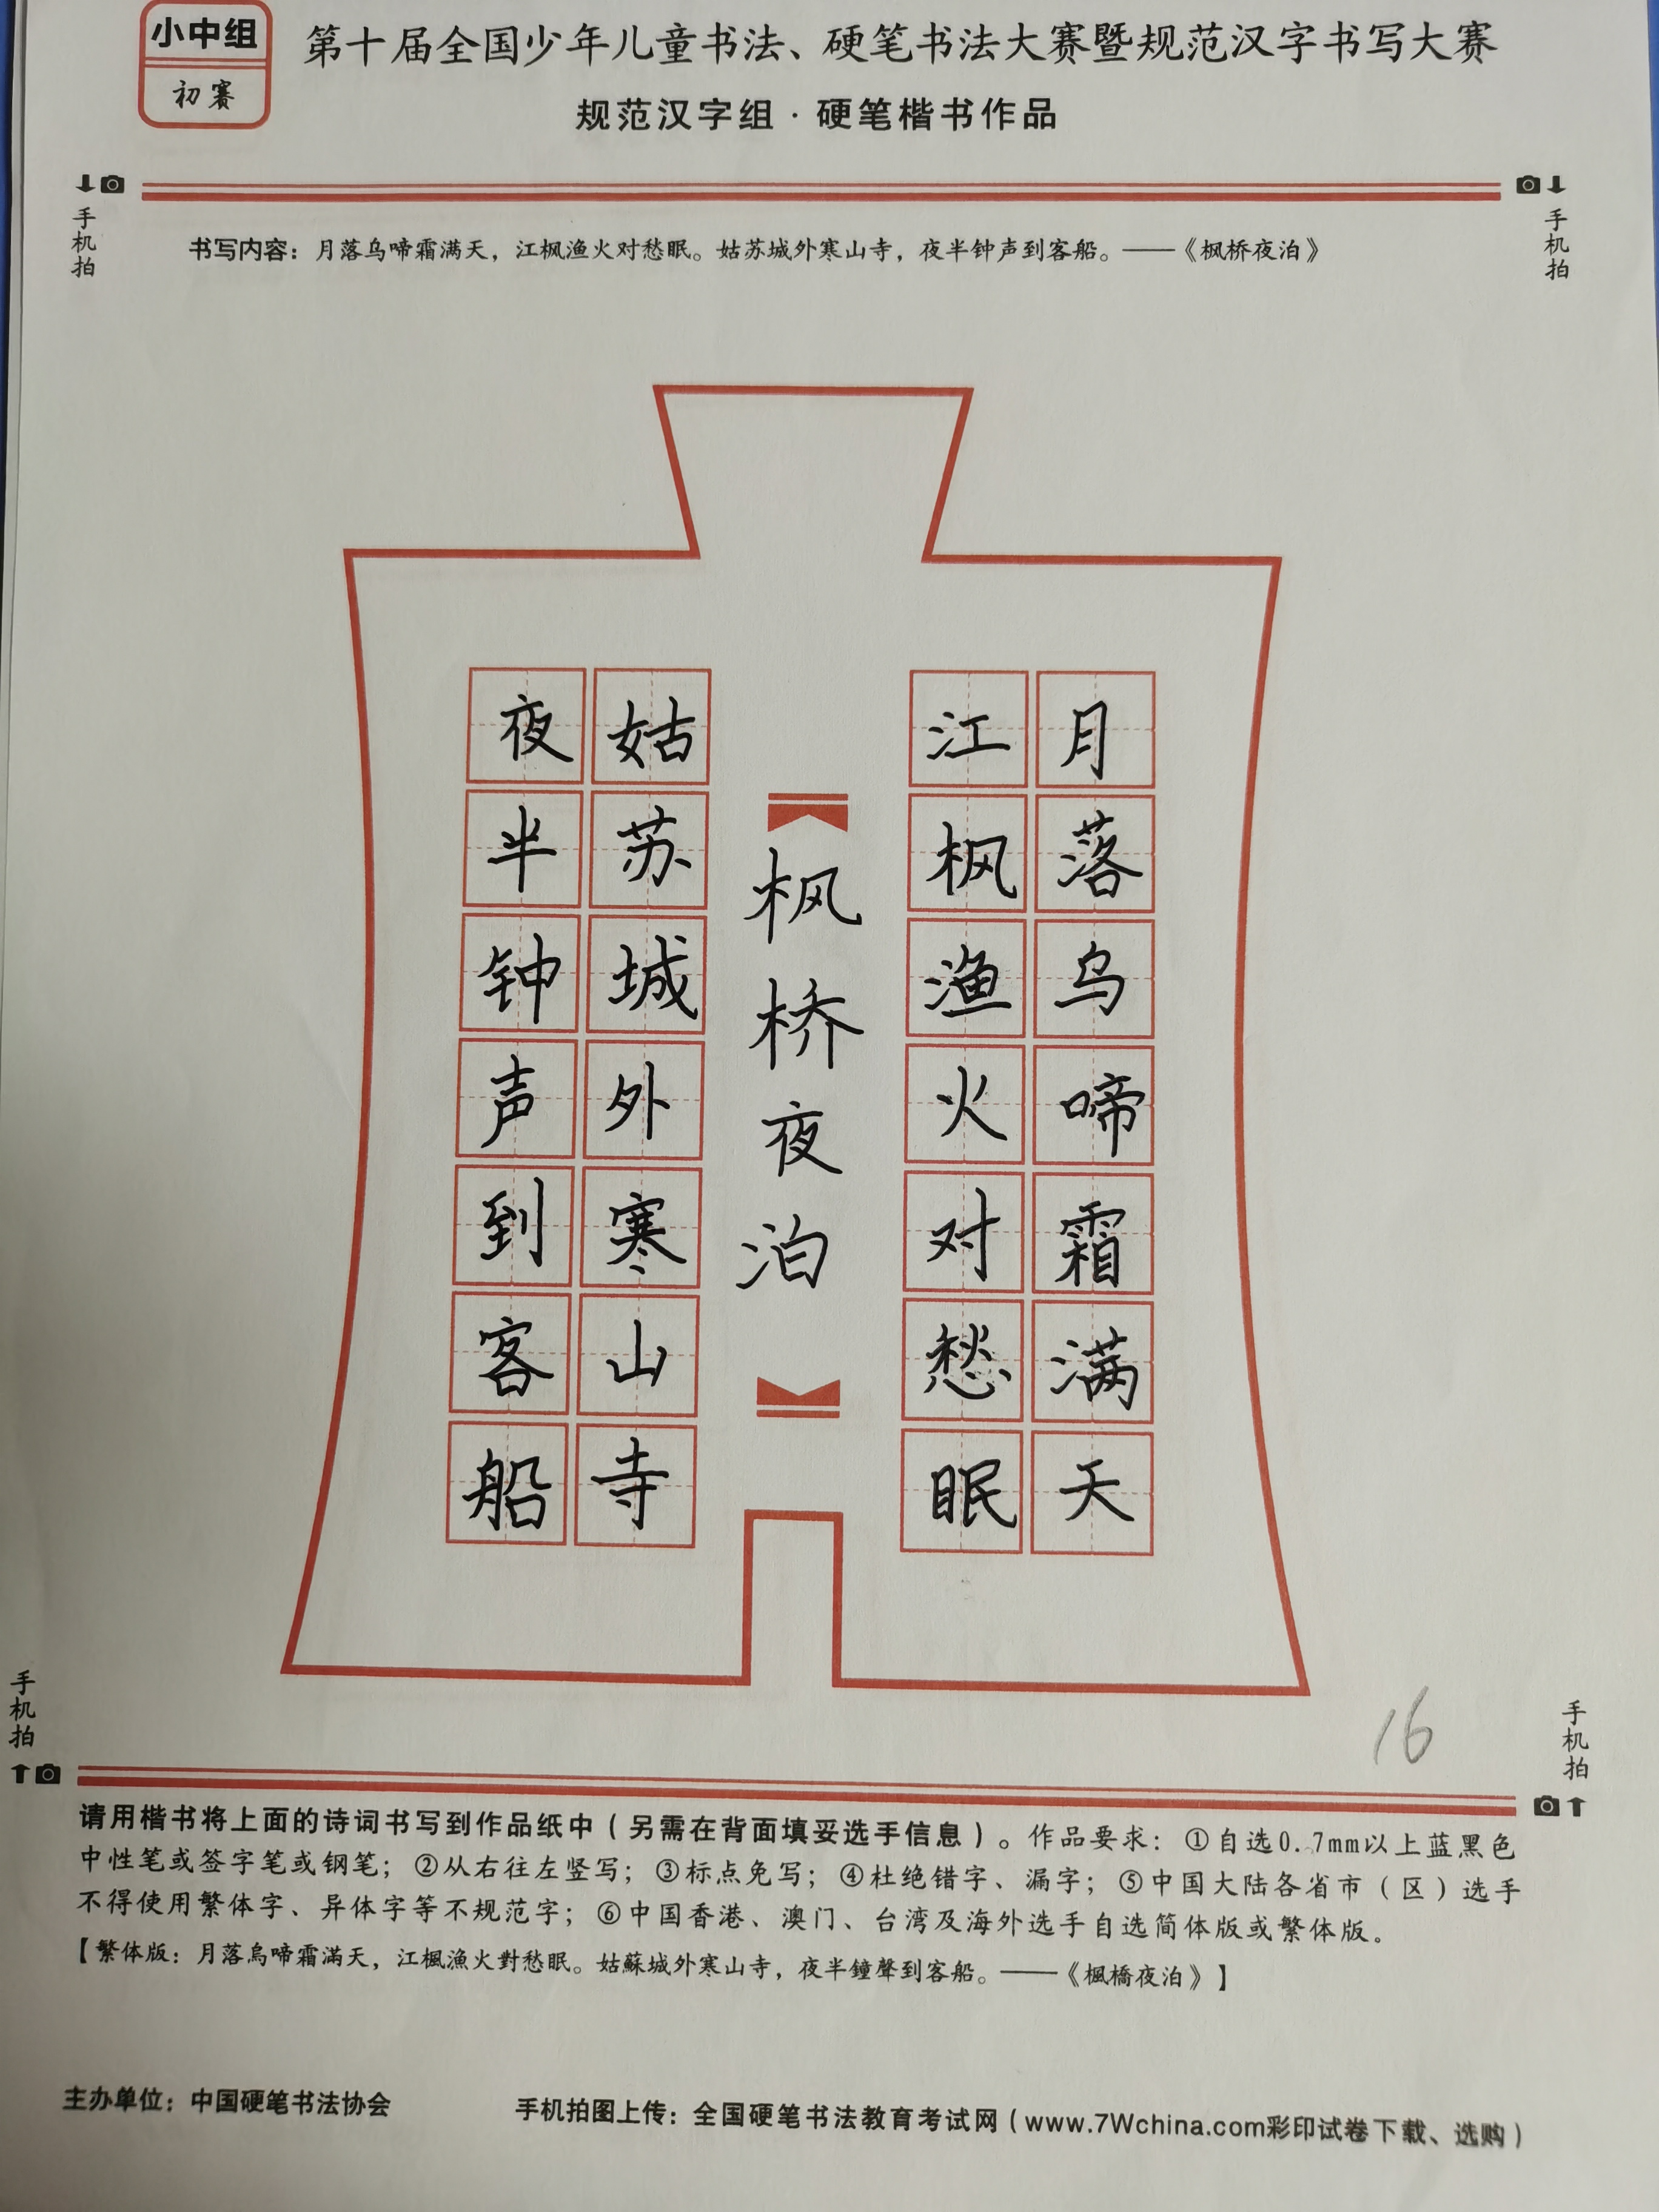 小中组
初赛
第十届全国少年儿童书法、硬笔书法大赛暨规范汉字书写大赛
规范汉字组·硬笔楷书作品
手机拍
手机拍
书写内容：月落乌啼霜满天，江枫渔火对愁眠。姑苏城外寒山寺，夜半钟声到客船。——《枫桥夜泊》
月落乌啼霜满天
江枫渔火对愁眠
枫桥夜泊
姑苏城外寒山寺
夜半钟声到客船
16
手机拍
手机拍
请用楷书将上面的诗词书写到作品纸中（另需在背面填妥选手信息）。作品要求：①自选0.7mm以上蓝黑色
中性笔或签字笔或钢笔；②从右往左竖写；③标点免写；④杜绝错字、漏字；⑤中国大陆各省市（区）选手
不得使用繁体字、异体字等不规范字；⑥中国香港、澳门、台湾及海外选手自选简体版或繁体版。
【繁体版：月落烏啼霜滿天，江楓漁火對愁眠。姑蘇城外寒山寺，夜半鐘聲到客船。——《楓橋夜泊》】
主办单位：中国硬笔书法协会
手机拍图上传：全国硬笔书法教育考试网（www.7Wchina.com彩印试卷下载、选购）